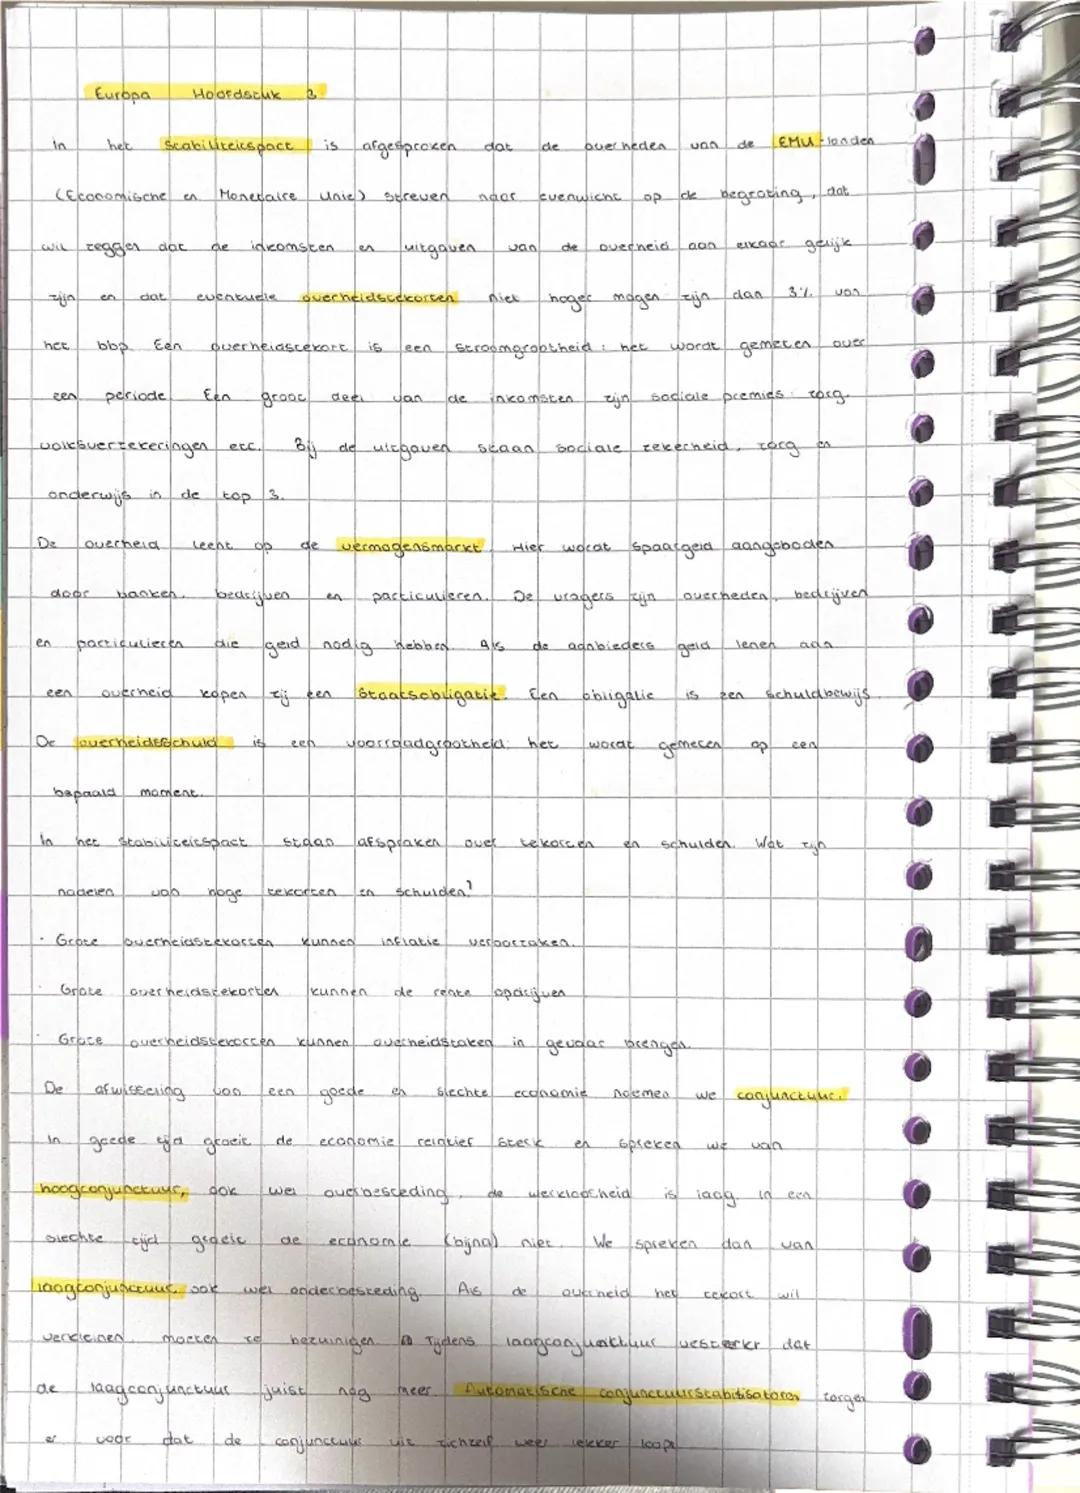 Europa Hoofdstuk 3
In het stabiliteitspact is afgesproken dat de overheden van de EMU-landen
(Economische en Monetaire Unie) streven naar evenwicht op de begroting, dat
wil zeggen dat de inkomsten en uitgaven van de overheid aan elkaar gelijk
zijn en dat eventuele overheidstekorten niet hoger mogen zijn dan 3% van
het bbp. Een overheidstekort is een stroomgrootheid: het wordt gemeten over
een periode. Een groot deel van de inkomsten zijn sociale premies: zorg-
volksverzekeringen etc. Bij de uitgaven staan sociale zekerheid, zorg en
onderwijs in de top 3.
De overheid leent op de vermogensmarkt. Hier wordt spaargeld aangeboden
door banken, bedrijven en particulieren. De vragers zijn overheden, bedrijven
en particulieren die geld nodig hebben. Als de aanbieders geld lenen aan
een overheid kopen zij een staatsobligatie. Een obligatie is een schuldbewijs.
De overheidsschuld is een voorraadgrootheid: het wordt gemeten op een
bepaald moment.
In het stabiliteitspact staan afspraken over tekorten en schulden. Wat zijn
nadelen van hoge tekorten en schulden?
· Grote overheidstekorten kunnen inflatie veroorzaken.
· Grote overheidstekorten kunnen de rente opdrijven
· Grote overheidstekorten kunnen overheidstaken in gevaar brengen.
De afwisseling van een goede en slechte economie noemen we conjunctuur.
In goede tijd groeit de economie relatief sterk en spreken we van
hoogconjunctuur, ook wel overbesteding, de werkloosheid is laag. In een
slechte tijd groeit de economie (bijna) niet. We spreken dan van
laagconjunctuur, ook wel onderbesteding. Als de overheid het tekort wil
verkleinen, moeten ze bezuinigen. Tijdens laagconjunctuur versterkt dat
de laagconjunctuur juist nog meer. Automatische conjunctuurstabilisatoren zorgen
er voor dat de conjunctuur uit zichzelf weer lekker loopt